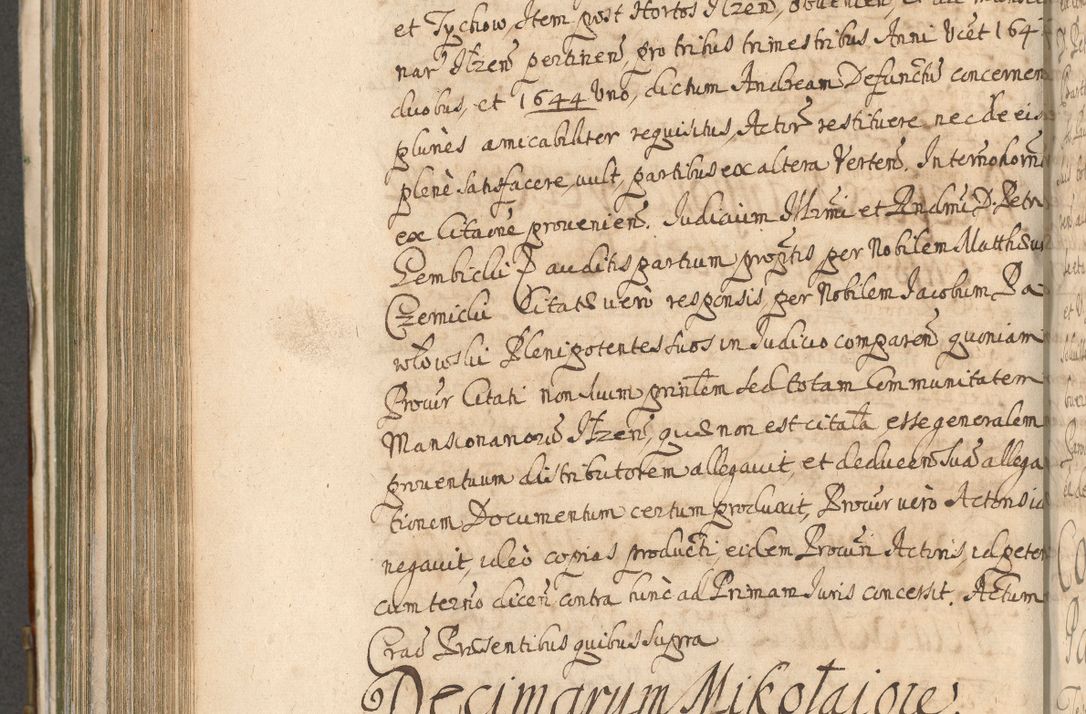 et Tychow, Item post Hortos Itzen̄, obvenien̄ et ad
nar̄ Itzen̄ pertinen̄, pro tribus trimestribus Anni Vcēt 164
duobus, et 1644 Uno, dictum Andream Defunctū concernen
plurēs amicabiliter requisitus, Actorī restituere nec de eis
plenè satisfacere, vult, partibus ex altera Verten̄. In termo hōrn
ex Citaōne provenien̄. Judicium Illrmi et Rndmi D. Petri
Gembicki D auditis partium propōtis per Nobilem Matthæum
Czernicki Citatæ verò responsis per Nobilem Jacobum Pa
włowski Plenipotentes suos in Judicio comparen̄ quoniam
Procūr Citati non suum prin̄lem sed totam Communitatem
Mansionariorū Itzen̄, quæ non est citata esse generalem
proventuum distributorem allegavit, et deducen̄ suā allega
tionem Documentum certum produxit, Procūr verò Actoris id
negavit, ideò copias producti eidem Procūri Actoris, id peten
cum termo dicen̄ contra hinc ad Primam Juris concessit. Actum
Crac̄ Præsentibus quibus supra
Decimarum Mikołaiovie: